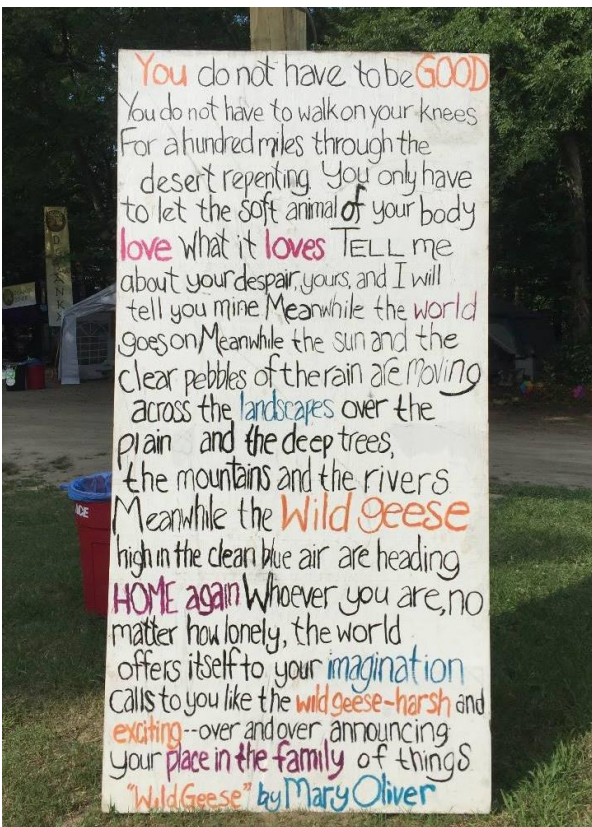 You do not have to be GOOD
You do not have to walk on your knees
For a hundred miles through the
desert repenting. You only have
to let the soft animal of your body
love what it loves TELL me
about your despair, yours, and I will
tell you mine Meanwhile the world
goes on, Meanwhile the sun and the
clear pebbles of the rain are moving
across the landscapes over the
plain and the deep trees,
the mountains and the rivers
Meanwhile the Wild geese
high in the clean blue air are heading
HOME again Whoever you are, no
matter how lonely, the world
offers itself to your imagination
calls to you like the wild geese-harsh and
exciting--over and over announcing
your place in the family of things
"Wild Geese" by Mary Oliver
ICE